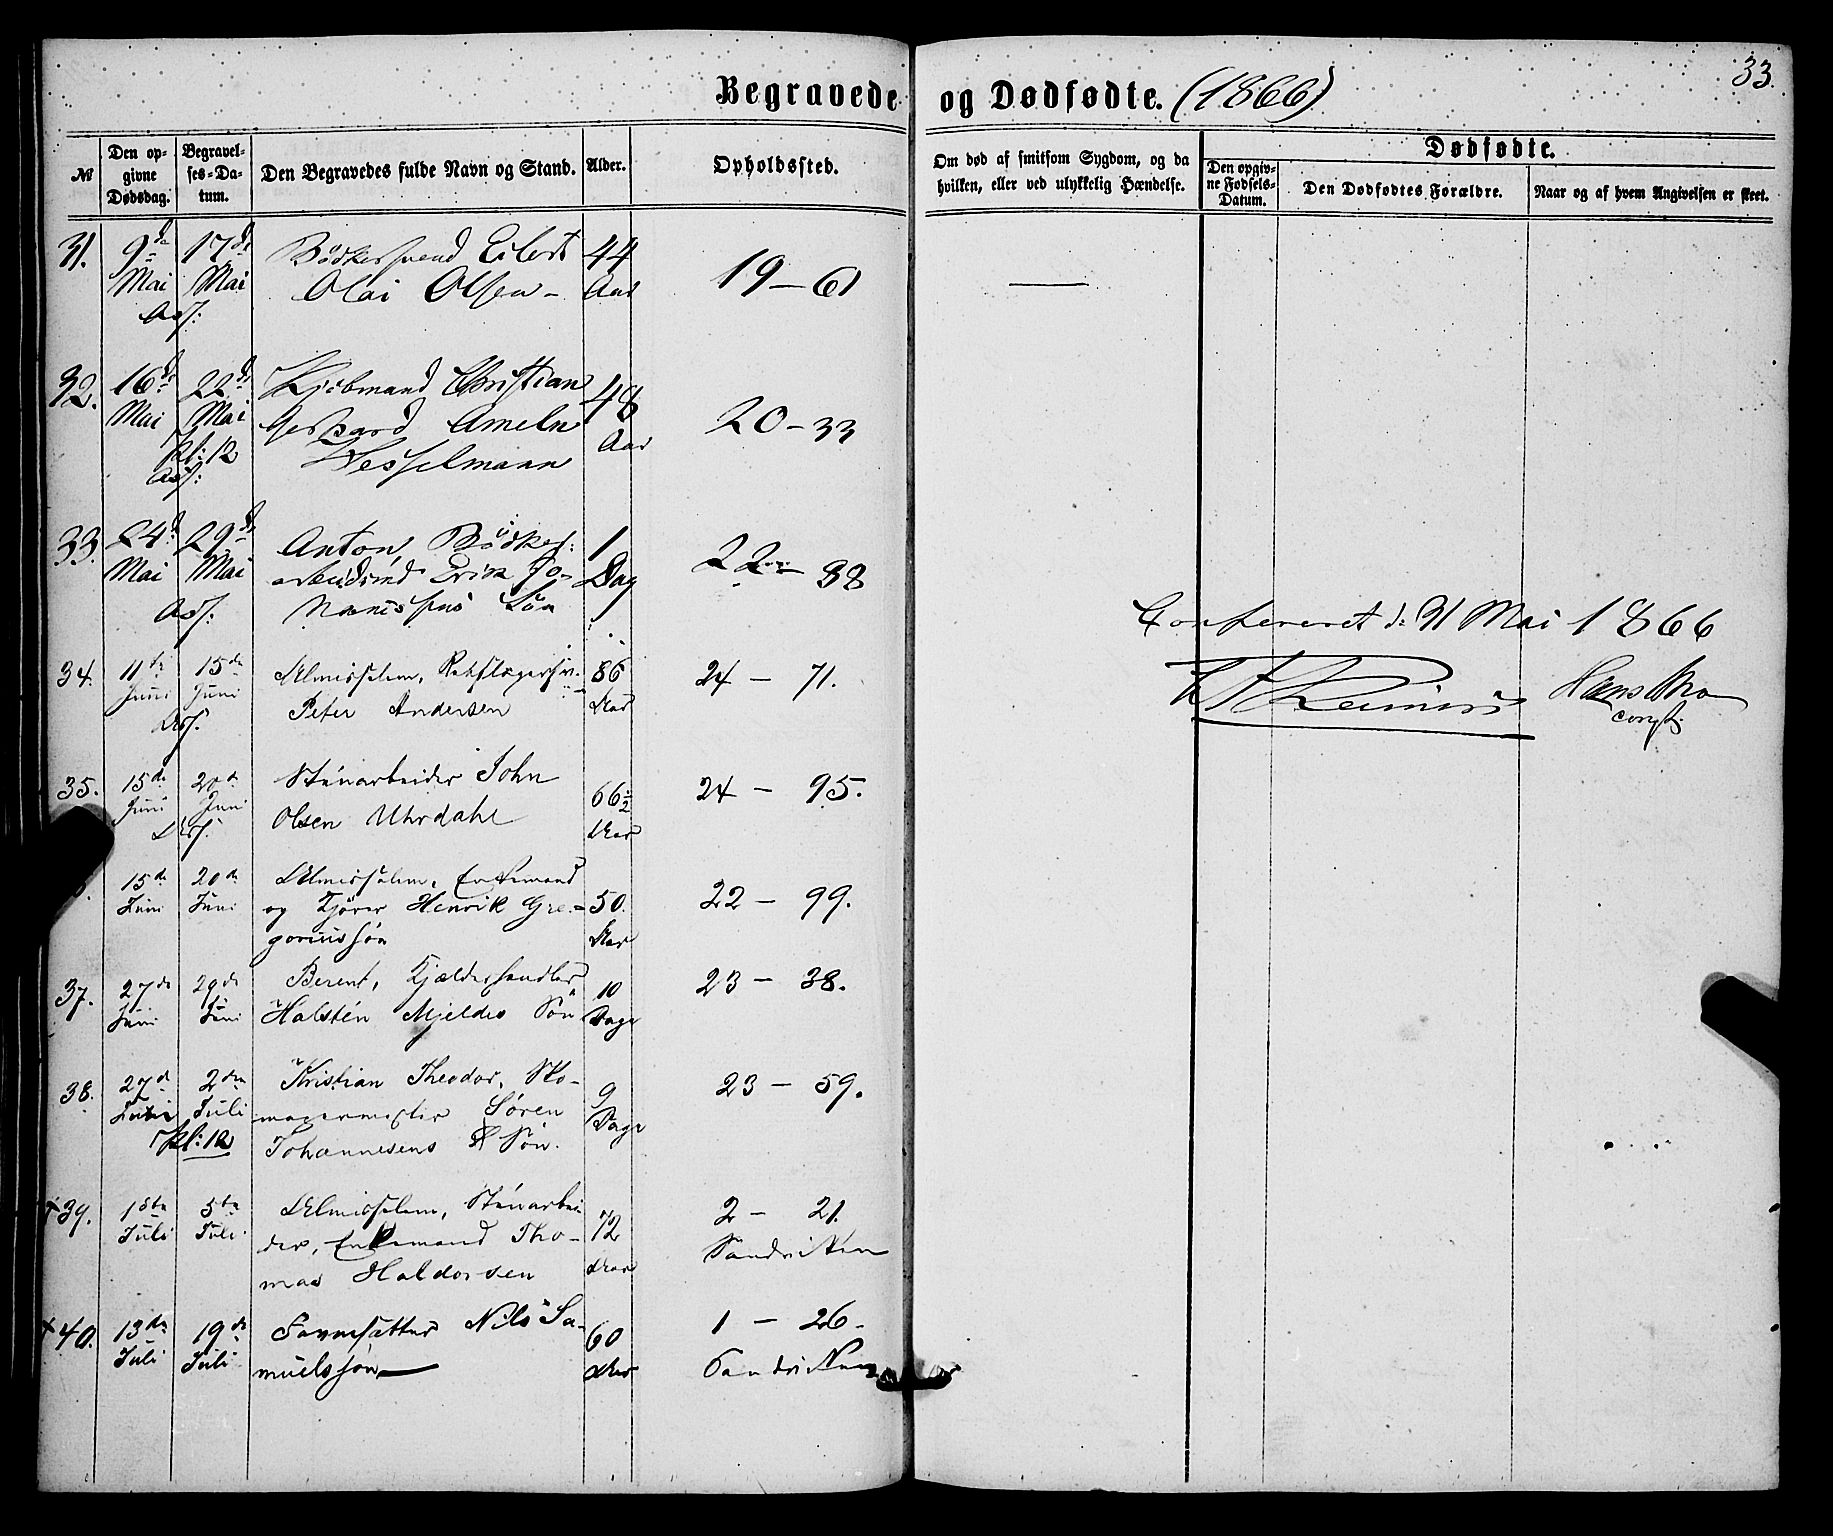 Begravede og Dødfødte. (1866)
33.
№
Den opgivne Dødsdag.
Begravelses-Datum.
Den Begravedes fulde Navn og Stand.
Alder.
Opholdssted.
Om død af smitsom Sygdom, og da hvilken, eller ved ulykkelig Hændelse.
Dødfødte.
Den opgivne Fødsels-Datum.
Den Dødfødtes Forældre.
Naar og af hvem Angivelsen er skeet.
31. 9de Mai 17de Mai Bödkersvend Eilert 44 Aar 19 – 61 —
Olai Olsen –
32. 16de Mai 22de Mai Kjöbmand Christian 48 Aar 20 – 33
Kl: 12 Gerhard Ameln
Wesselmann
33. 24d Mai 29de Mai Anton, Bödker- 1 Dag 22 – 38
arbeidsmd Erik Jo-
Sön
Confereret d: 31 Mai 1866
34. 11te Juni 15de Juni Almisselem, 86 Aar 24 – 71.
Peter Andersen
Hans
35. 15de Juni 20d Juni Stenarbeider John 66½ Aar 24 – 95.
Olsen Uhrdahl
15de Juni 20de Juni Almisselem, Enkemand 50 Aar 22 – 99.
og Kjörer Henrik Gre-
goriussön
37. 27de Juni 29de Juni Berent, Kjælderhandler 10 Dage 23 – 38.
Halsten Mjeldes Sön
38. 27d 2den Juli Kristian Theodor, Sko- 9 Dage 23 – 59.
Kl: 12 magermester Sören
Johannesens Sön.
+39. 1ste Juli 5te Juli Almisselem, Stenarbei- 72 Aar 2 – 21.
der, Enkemand Tho- Sandviken
mas Haldorsen
+40. 13de Juli 19de Juli Nils Sa- 60 Aar 1 – 26.
muelssön Sandviken